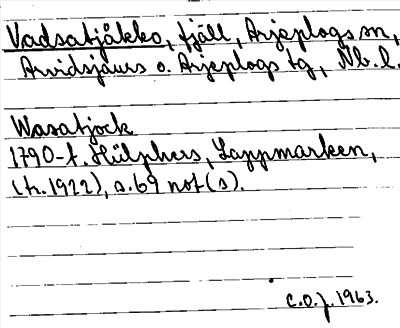 Vadsatjåkko, fjäll, Arjeplogs sn,
Arvidsjaurs o. Arjeplogs tg, Nb. l.
Wasatjock
1790-t. Hülphers, Lappmarken,
(tr. 1922), s. 69 not (s).
C.O.J. 1963.